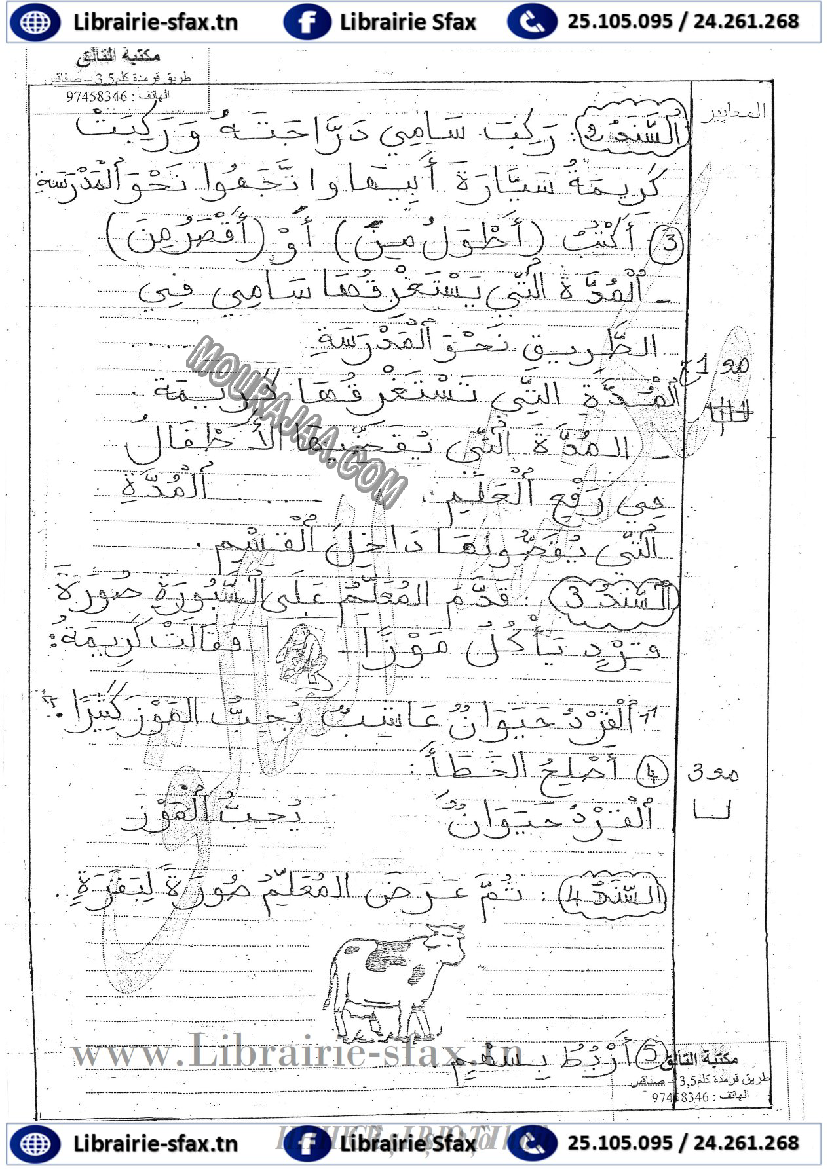 Librairie-sfax.tn Librairie Sfax 25.105.095 / 24.261.268
مكتبة التالق
طريق قرمدة كلم3,5 – صفاقس
الهاتف : 97458346
المعايير
السَّنَدُ 2 : رَكِبَ سَامِي دَرَّاجَتَهُ وَ رَكِبَتْ
كَرِيمَةُ سَيَّارَةَ أَبِيهَا وَ اتَّجَهُوا نَحْوَ الْمَدْرَسَةِ
3 أَكْتُبُ (أَطْوَلُ مِنْ) أَوْ (أَقْصَرُ مِنَ)
- الْمُدَّةُ الَّتِي يَسْتَغْرِقُهَا سَامِي فِي
الطَّرِيقِ نَحْوَ الْمَدْرَسَةِ .......
مع 1ج
الْمُدَّةِ الَّتِي تَسْتَغْرِقُهَا كَرِيمَة .
- المُدَّةَ الَّتِي يُقَضِّيهَا الأَطْفَالُ
فِي رَفْعِ الْعَلَمِ ....... الْمُدَّةِ
الَّتِي يُقَضُّونَهَا دَاخِلَ الْقِسْمِ .
السَّنَدُ 3 : قَدَّمَ المُعَلِّمُ عَلَى السَّبُورَةِ صُورَةَ
قِرْدٍ يَأْكُلُ مَوْزًا فَقَالَتْ كَرِيمَةُ :
" الْقِرْدُ حَيَوَانٌ عَاشِبٌ يُحِبُّ المَوْزَ كَثِيرًا . "
4 أَصْلِحُ الخَطَأَ :
مع 3
الْقِرْدُ حَيَوَانٌ يُحِبُّ الْمَوْز
السَّنَدُ 4 : ثُمَّ عَرَضَ المُعَلِّمُ صُورَةً لِبَقَرَةٍ .
5 أَرْبُطُ بِسَهْمٍ
MOURAJAA.COM
www.Librairie-sfax.tn
مكتبة التالق
طريق قرمدة كلم3,5 – صفاقس
الهاتف : 97458346
Librairie-sfax.tn Librairie Sfax 25.105.095 / 24.261.268